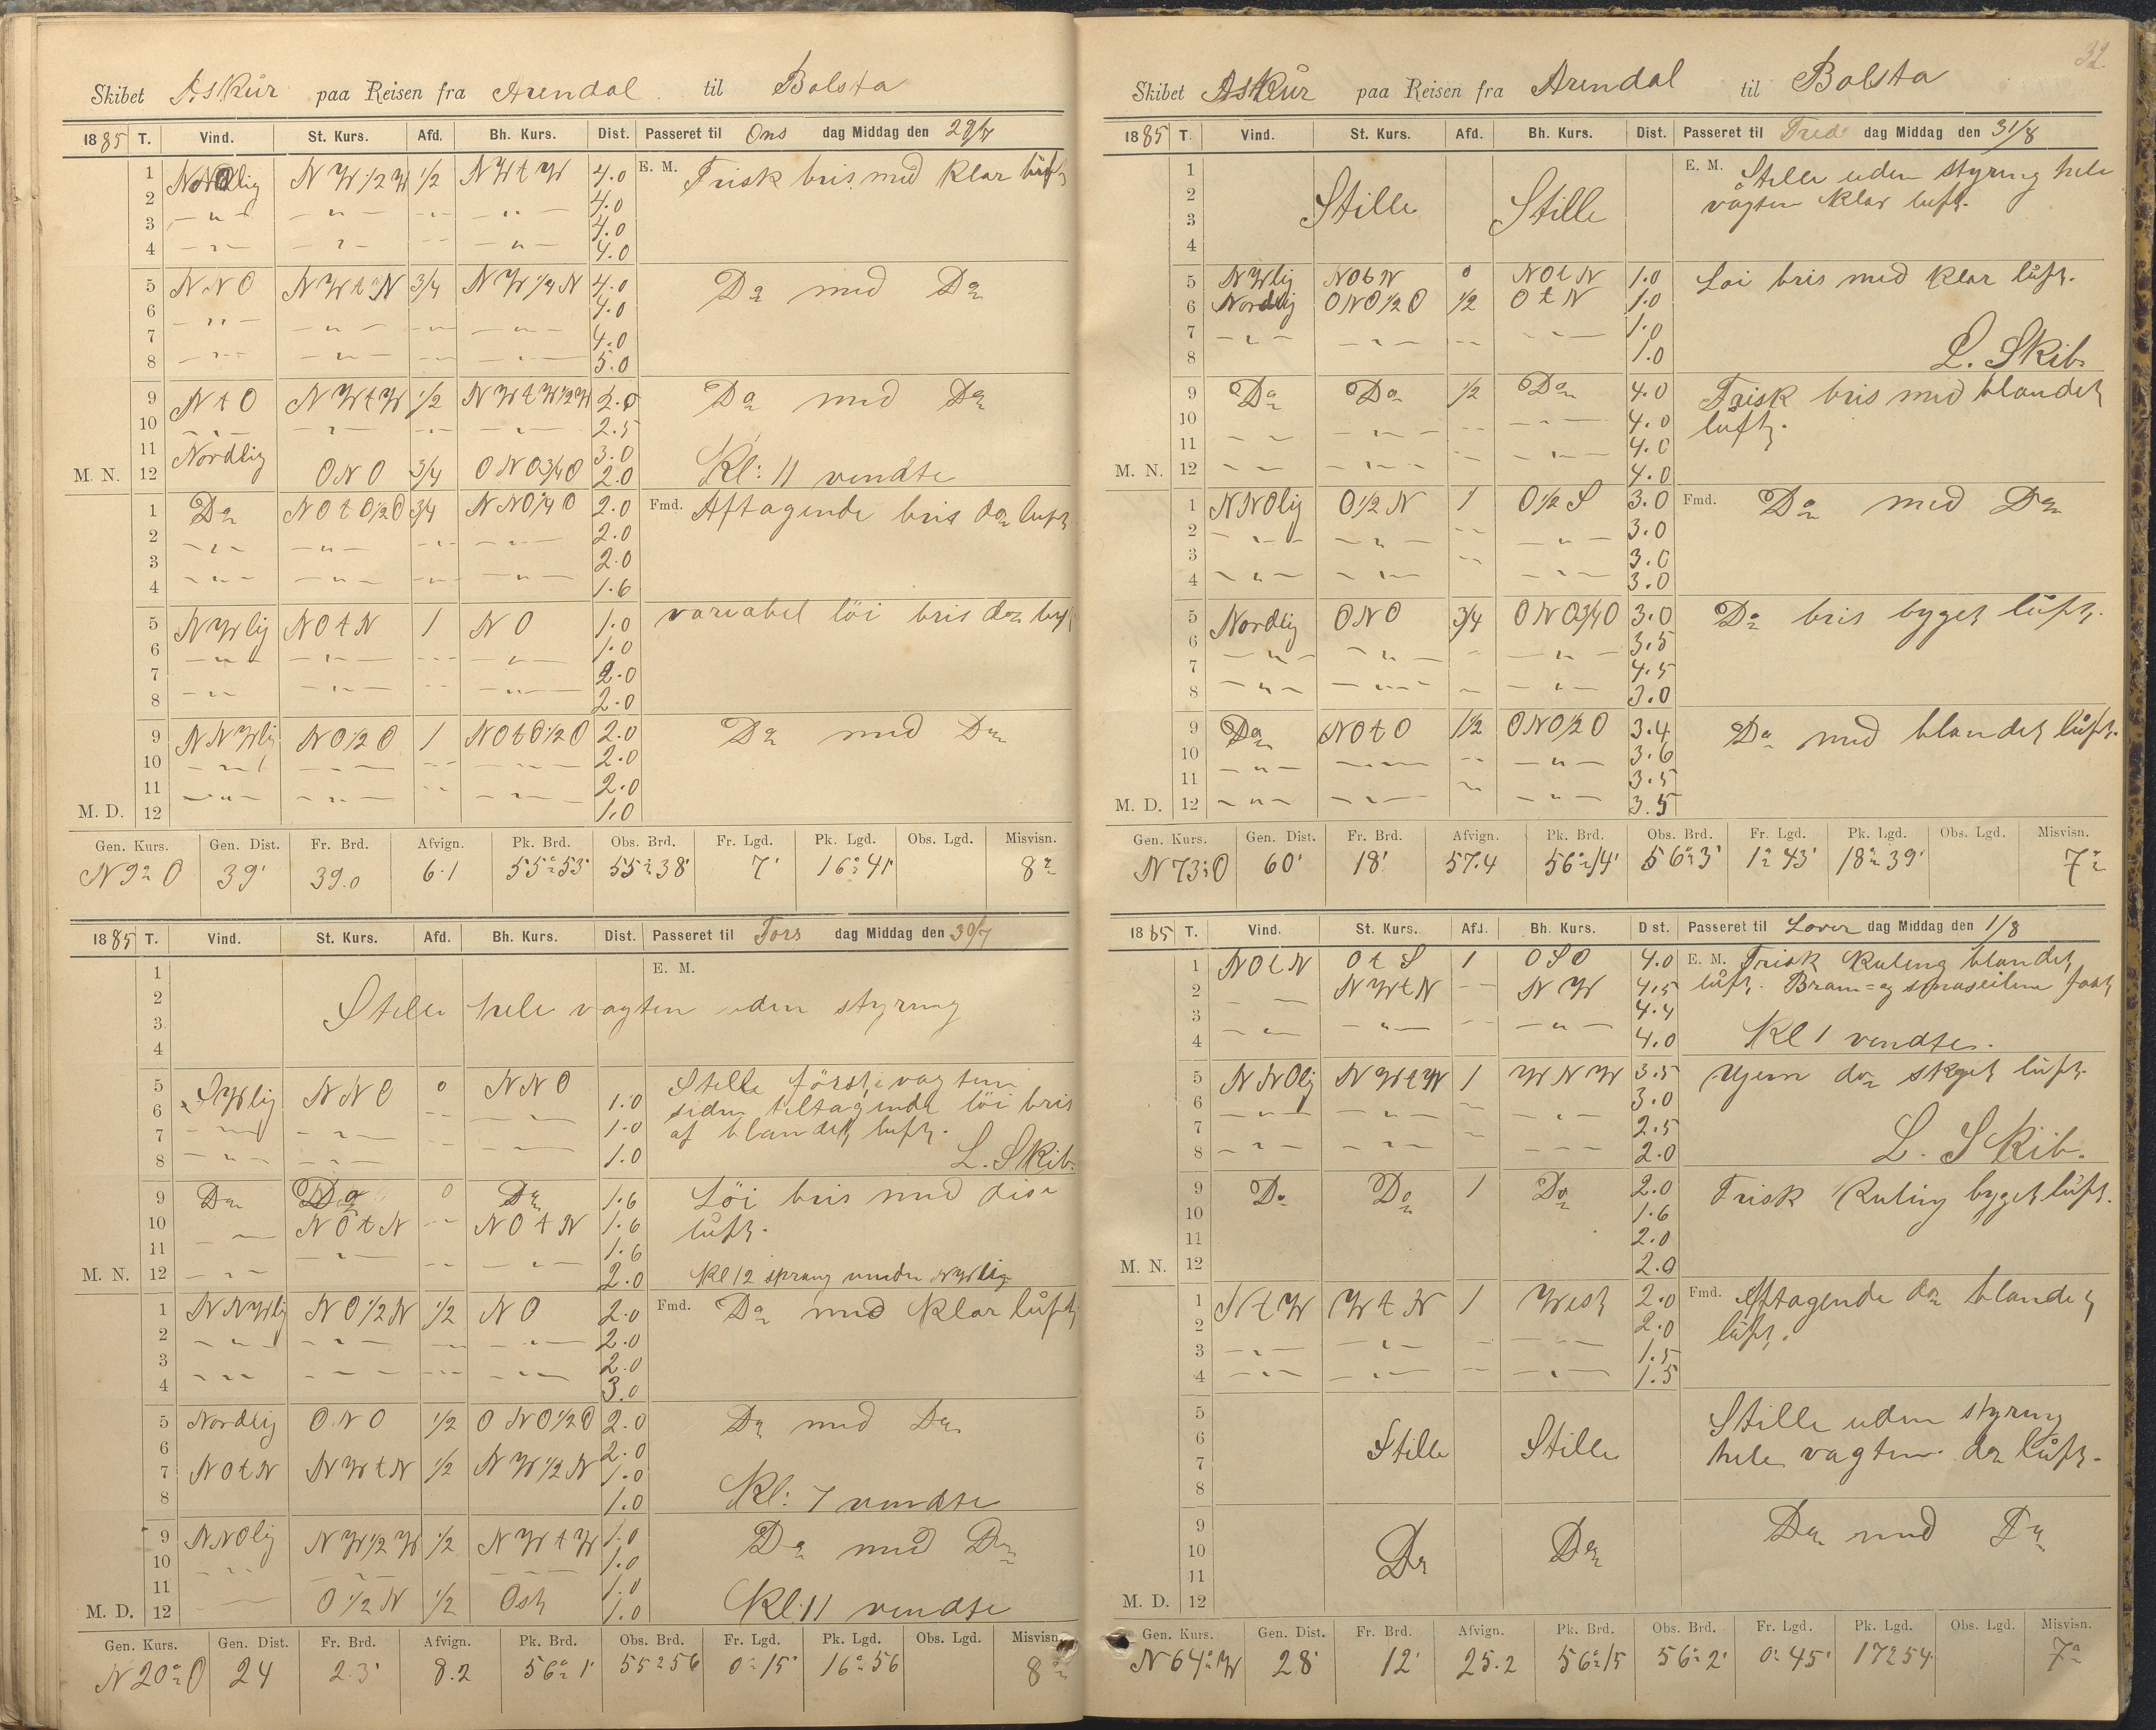 Skibet Askur paa Reisen fra Arendal til Bolsta
1885 T. Vind. St. Kurs. Afd. Bh. Kurs. Dist. Passeret til Ons dag Middag den 29/7
1 Nordlig NW 1/2 W 1/2 NWtW 4.0 E. M. Frisk bris med klar luft
2 — " — — " — — " — — " — 4.0
3 4.0
4 — " — — " — — " — — " — 4.0
5 NNO NWtN 3/4 NW 1/4 N 4.0 Do med Do
6 — " — 4.0
7 — " — — " — — " — 4.0
8 — " — — " — — " — — " — 5.0
9 NtO NWtW 1/2 NWtW1/2W 2.5 Do med Do
10 — " — — " — — " — — " — 2.5
11 Nordlig 3.0
M. N. 12 ONO 3/4 ONO3/4O 2.0 Kl: 11 vendte
1 Do NOtO1/2O 3/4 NNO1/4O 2.0 Fmd. Aftagende bris do luft
2 — " — — " — — " — — " — 2.0
3 2.0
4 — " — — " — — " — — " — 1.6
5 NWlig NOtN 1 NO 1.0 variabel löi bris do luft
6 — " — — " — — " — — " — 1.0
7 2.0
8 — " — — " — — " — — " — 2.0
9 NNWlig NO1/2O 1 NOtO1/2O 2.0 Do med Do
10 — " — — " — — " — — " — 2.0
11 — " — — " — — " — — " — 2.0
M. D. 12 1.0
Gen. Kurs. Gen. Dist. Fr. Brd. Afvign. Pk. Brd. Obs. Brd. Fr. Lgd. Pk. Lgd. Obs. Lgd. Misvisn.
N 9° O 39' 39.0 6.1 55° 53' 55° 38' 7' 16° 41' 8°
1885 T. Vind. St. Kurs. Afd. Bh. Kurs. Dist. Passeret til Tors dag Middag den 30/7
1 E. M.
2 Stille hele vagten uden styring
3
4
5 SWlig NNO 0 NNO Stille första vagten
6 — " — — " — 1.0 siden tiltagende löi bris
7 — " — — " — — " — — " — 1.0 af blandet luft.
8 — " — — " — 1.0 L. Skib.
9 Do Do 0 Do 1.6 Löi bris med dise
10 — " — NOtN — " — NOtN 1.6 luft.
11 — " — 1.6
M. N. 12 — " — — " — — " — 2.0 Kl 12 sprang vinden NWlig
1 NNWlig NO1/2N 1/2 NO 2.0 Fmd. Do med klar luft
2 — " — — " — — " — — " — 2.0
3 — " — — " — — " — — " — 2.0
4 3.0
5 Nordlig ONO 1/2 ONO1/2O 2.0 Do med Do
6 2.0
7 NOtN NWtN 1/2 NW1/2N 1.0
8 1.0 Kl: 7 vendte
9 NNOlig NW1/2W 1/2 NWtW 1.0 Do med Do
10 — " — — " — — " — 1.0
11 1.0
M. D. 12 — " — O1/2N 1/2 Ost 1.0 Kl. 11 vendte
Gen. Kurs. Gen. Dist. Fr. Brd. Afvign. Pk. Brd. Obs. Brd. Fr. Lgd. Pk. Lgd. Obs. Lgd. Misvisn.
N 20° O 24 23' 8.2 56° 1' 55° 56 0° 15' 16° 56 8°
32
Skibet Askur paa Reisen fra Arendal til Bolsta
1885 T. Vind. St. Kurs. Afd. Bh. Kurs. Dist. Passeret til Fred dag Middag den 31/8
1 E. M. Stille uden styring hele
2 Stille Stille vagten klar luft.
3
4
5 NWlig NObN 0 NOtN 1.0 Löi bris med klar luft.
6 Nordlig ONO1/2O 1/2 OtN 1.0
7 — " — — " — — " — — " — 1.0
8 1.0 L. Skib.
9 Do Do 1/2 Do 4.0 Frisk bris med blandet
10 — " — 4.0 luft.
11 — " — — " — — " — — " — 4.0
M. N. 12 — " — — " — — " — 4.0
1 NNOlig O1/2N 1 O1/2S 3.0 Fmd. Do med Do
2 — " — — " — — " — — " — 3.0
3 3.0
4 — " — — " — — " — — " — 3.0
5 Nordlig ONO 3/4 ONO3/4O 3.0 Do bris byget luft.
6 — " — — " — — " — — " — 3.5
7 4.5
8 — " — — " — — " — — " — 3.0
9 Do NOtO 1/2 ONO1/2O 3.4 Do med blandet luft.
10 — " — — " — — " — — " — 3.6
11 3.5
M. D. 12 — " — — " — — " — 3.5
Gen. Kurs. Gen. Dist. Fr. Brd. Afvign. Pk. Brd. Obs. Brd. Fr. Lgd. Pk. Lgd. Obs. Lgd. Misvisn.
N 73° O 60' 18' 57.4 56° 14' 56° 3' 1° 43' 18° 39' 7°
1885 T. Vind. St. Kurs. Afd. Bh. Kurs. Dist. Passeret til Lover dag Middag den 1/8
1 NOtN OtS 1 OSO 4.0 E. M. Frisk Kuling blandet
2 — " — NWtN — " — NW 4.5 luft. Bram= og smaseilene fast
3 — " — — " — — " — — " — 4.4
4 4.0 Kl 1 vendte.
5 NNOlig NWtW 1 WNW 3.5 Ujem do skyet luft.
6 — " — — " — — " — 3.0
7 2.5
8 — " — — " — — " — — " — 2.0 L. Skib.
9 Do Do 1 Do 2.0 Frisk Kuling byget luft.
10 1.6
11 2.0
M. N. 12 2.0
1 StW WtN 1 West 2.0 Fmd. Aftagende do blandet
2 — " — — " — 2.0 luft.
3 — " — 1.5
4 — " — — " — — " — — " — 1.5
5 Stille uden styring
6 Stille Stille hele vagten do luft.
7
8
9 Do med Do
10 Do Do
11
M. D. 12
Gen. Kurs. Gen. Dist. Fr. Brd. Afvign. Pk. Brd. Obs. Brd. Fr. Lgd. Pk. Lgd. Obs. Lgd. Misvisn.
N 64° W 28' 12' 25.2 56° 15 56° 2' 0° 45' 17° 54 7°